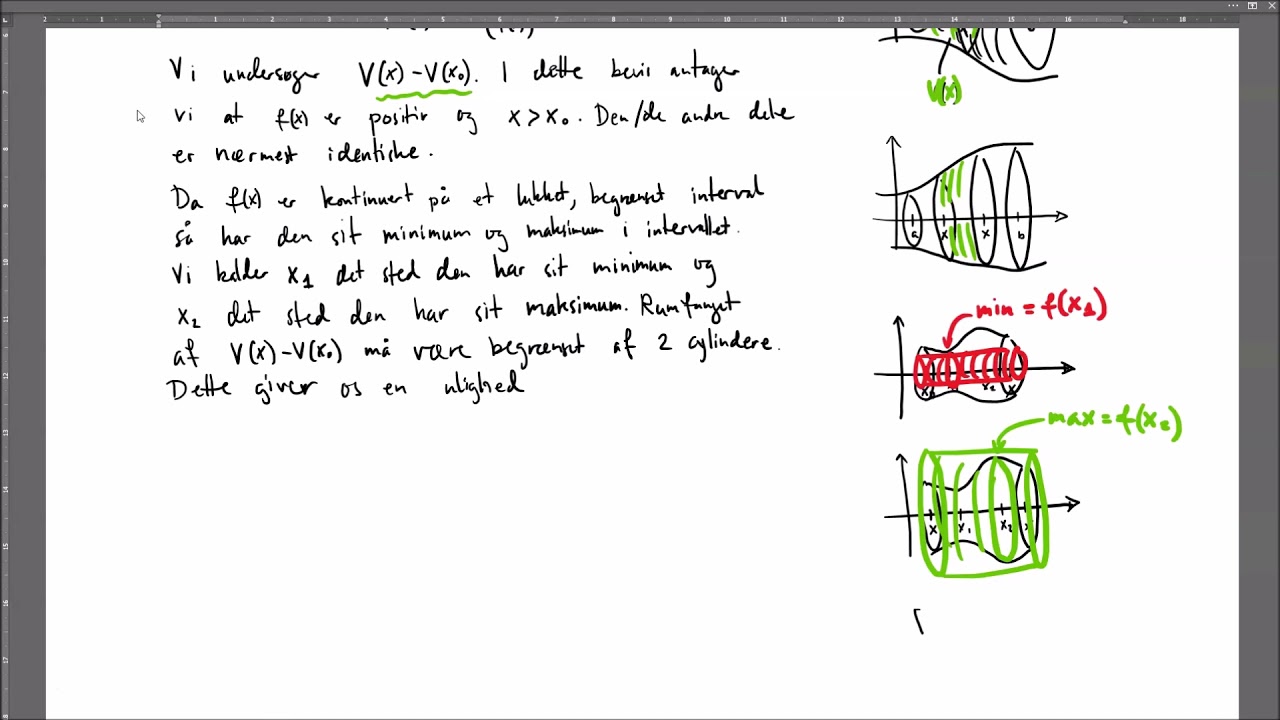 Vi undersøger V(x)-V(x₀). I dette bevis antager
vi at f(x) er positiv og x > x₀. Den/de andre dele
er nærmest identiske.
Da f(x) er kontinuert på et lukket, begrænset interval
så har den sit minimum og maksimum i intervallet.
Vi kalder x₁ det sted den har sit minimum og
x₂ det sted den har sit maksimum. Rumfanget
af V(x)-V(x₀) må være begrænset af 2 cylindere.
Dette giver os en ulighed
V(x)
a x x b
min = f(x₁)
max = f(x₂)
x x₁ x₂